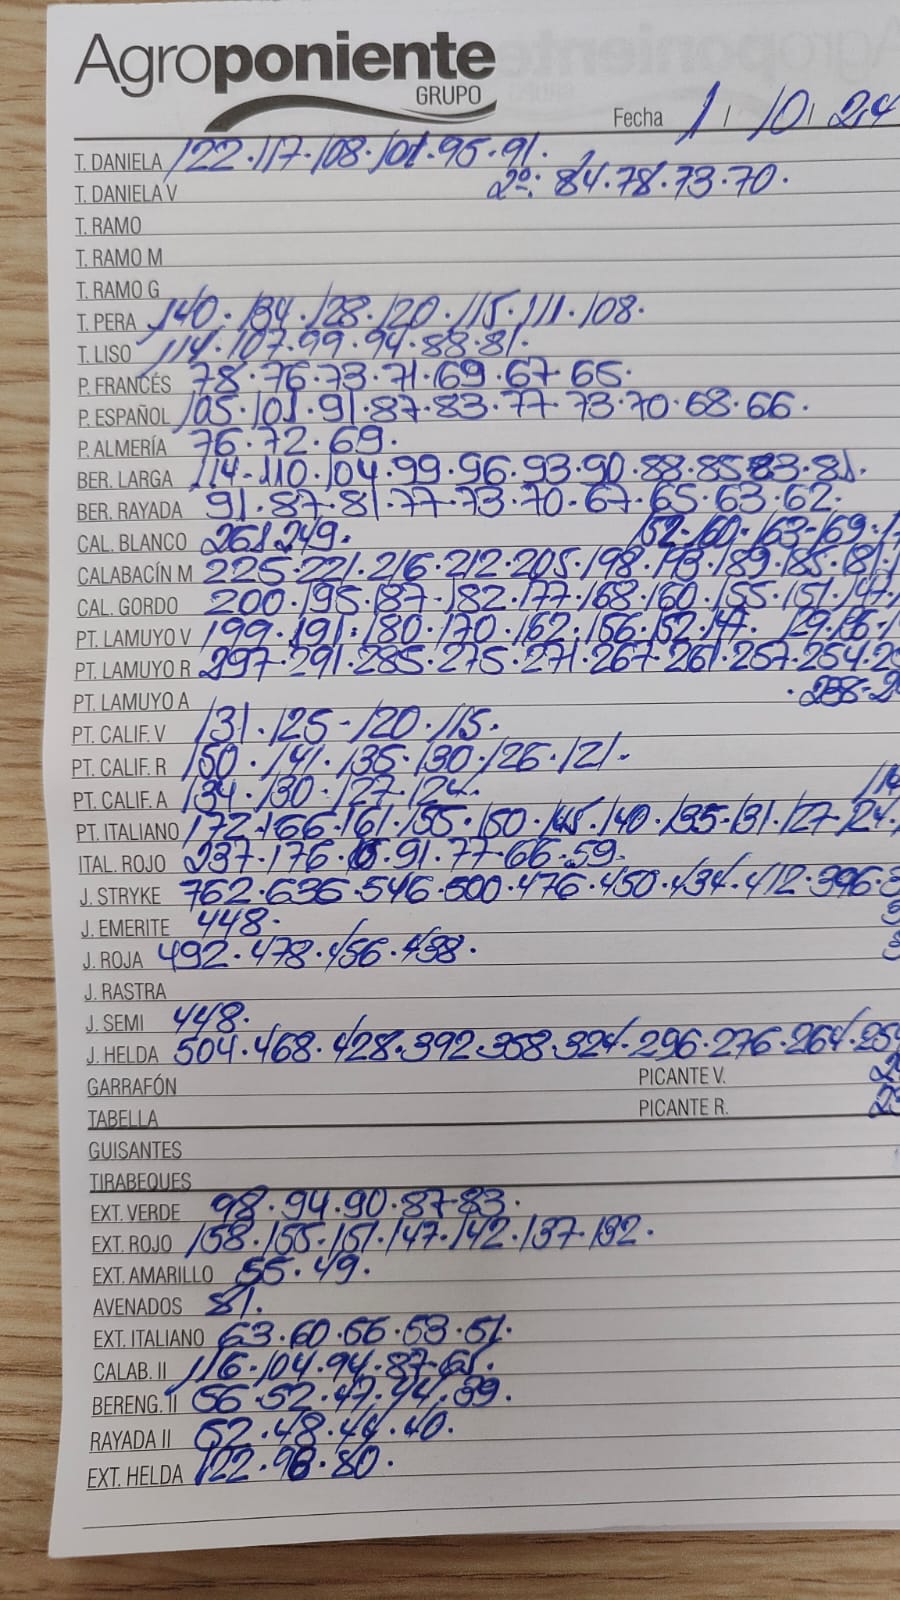 Agroponiente
GRUPO
Fecha 1 / 10 / 24
T. DANIELA 122.117.108.101.95.91.
T. DANIELA V 2º: 84.78.73.70.
T. RAMO
T. RAMO M
T. RAMO G
T. PERA 140.134.128.120.115.111.108.
T. LISO 114.107.99.94.88.81.
P. FRANCÉS 78.76.73.71.69.67.65.
P. ESPAÑOL 105.101.91.87.83.77.73.70.68.66.
P. ALMERÍA 76.72.69.
BER. LARGA 114.110.104.99.96.93.90.88.85.83.81.
BER. RAYADA 91.87.81.77.73.70.67.65.63.62.
CAL. BLANCO 261.249. 152.160.163.169.
CALABACÍN M 225.221.216.212.205.198.193.189.185.181.
CAL. GORDO 200.195.187.182.177.168.160.155.151.147.
PT. LAMUYO V 199.191.180.170.162.156.152.147.
PT. LAMUYO R 297.291.285.275.271.267.261.257.254.
PT. LAMUYO A
PT. CALIF. V 131.125-120.115.
PT. CALIF. R 150.141.135.130.126.121.
PT. CALIF. A 134.130.127.124.
PT. ITALIANO 172.166.161.155.150.145.140.135.131.127.124.
ITAL. ROJO 237.176. 91.77.66.59.
J. STRYKE 762.636.546.500.476.450.434.412.396.
J. EMERITE 448.
J. ROJA 492.478.456.438.
J. RASTRA
J. SEMI 448.
J. HELDA 504.468.428.392.358.324.296.276.264.254
GARRAFÓN PICANTE V.
TABELLA PICANTE R.
GUISANTES
TIRABEQUES
EXT. VERDE 98.94.90.87.83.
EXT. ROJO 158.155.151.147.142.137.132.
EXT. AMARILLO 55.49.
AVENADOS 81.
EXT. ITALIANO 63.60.56.53.51.
CALAB. II 116.104.94.87.65.
BERENG. II 56.52.47.44.39.
RAYADA II 52.48.44.40.
EXT. HELDA 122.98.80.